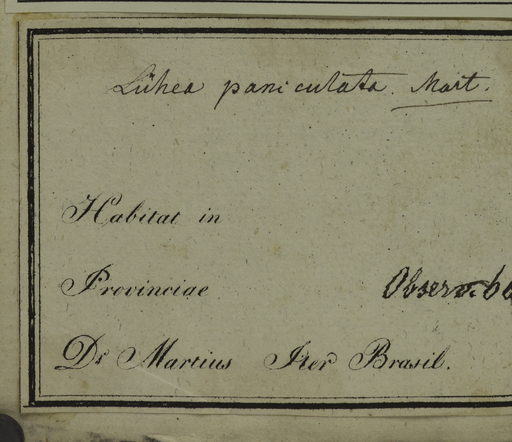 Lühea paniculata. Mart.
Habitat in
Provinciae Observ. 6
Dr Martius Iter Brasil.